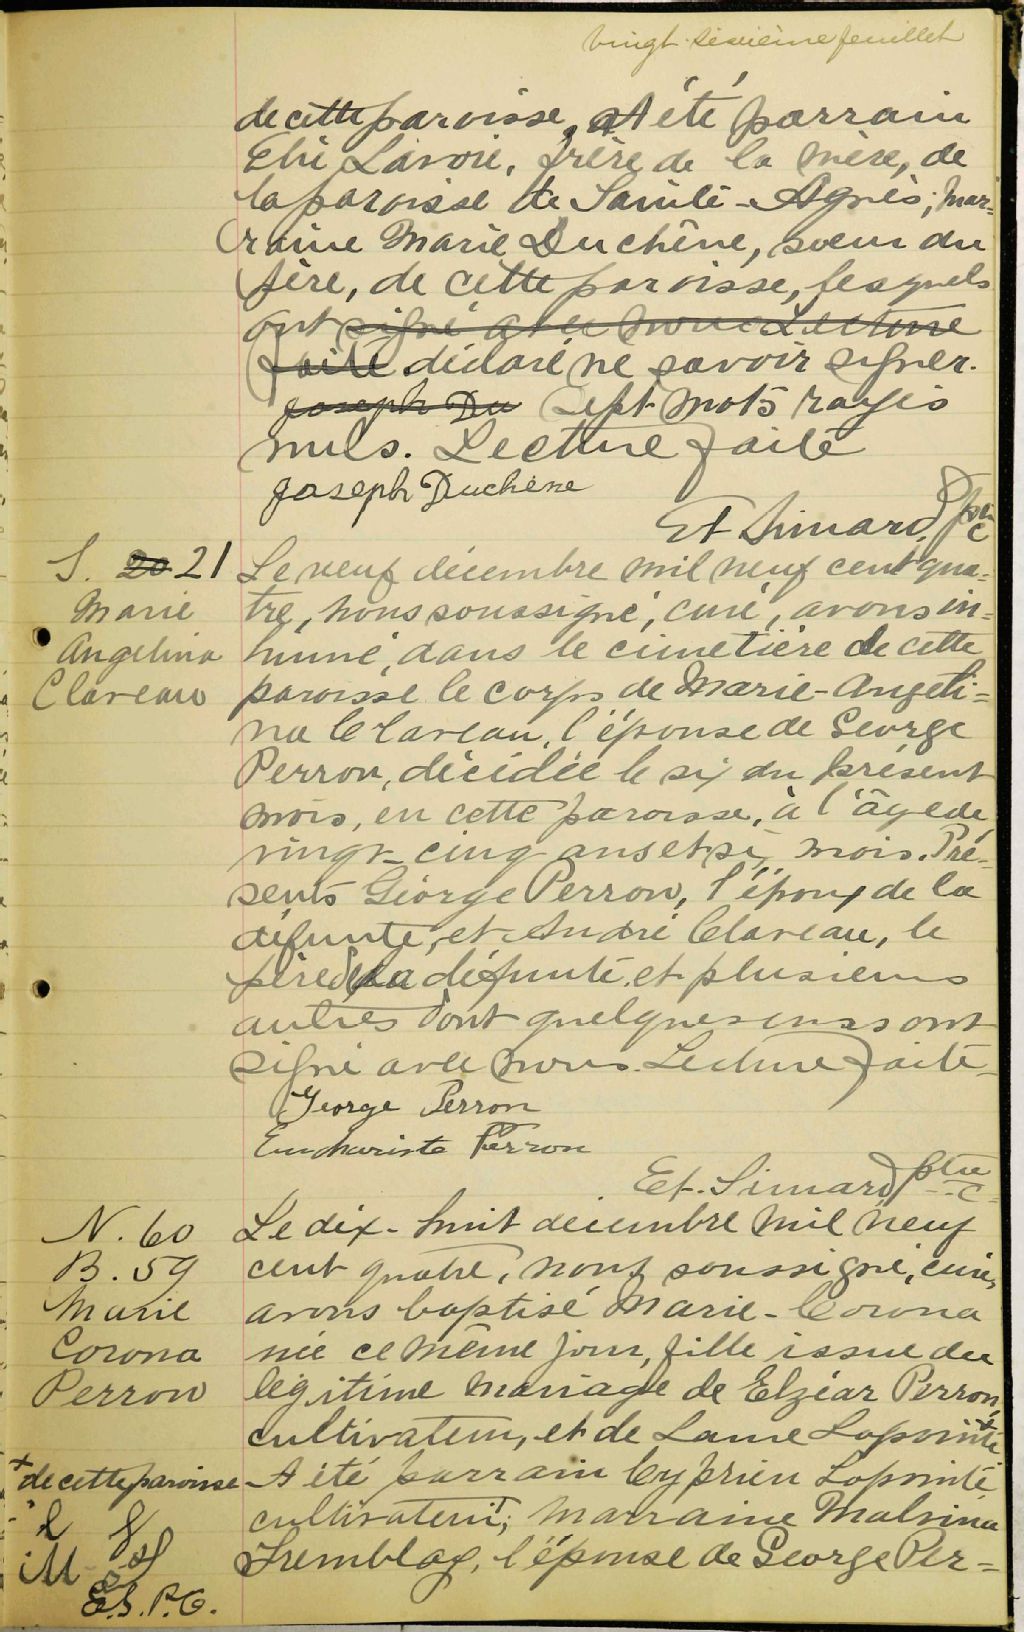 vingt-sixième feuillet
de cette paroisse, A été parrain
Elie Lavoie, frère de la mère, de
la paroisse de Sainte-Agnès; mar-
raine Marie Duchêne, soeur du
père, de cette paroisse, lesquels
ont signé avec nous Lecture
faite déclaré ne savoir signer.
Joseph Du Sept mots rayés
nuls. Lecture faite
Joseph Duchêne
Et Simard, ptre
c
S. 20 21
Marie
Angelina
Claveau
Le neuf décembre mil neuf cent qua-
tre, nous soussigné, curé, avons in-
humé, dans le cimetière de cette
paroisse le corps de Marie-Angeli-
na Claveau, l'épouse de George
Perron, décédée le six du présent
mois, en cette paroisse, à l'âge de
vingt-cinq ans et six mois. Pré-
sents George Perron, l'époux de la
défunte, et André Claveau, le
père de la défunte et plusieurs
autres dont quelques uns ont
signé avec nous. Lecture faite
George Perron
Euchariste Perron
Et. Simard ptre
c
N. 60
B. 59
Marie
Corona
Perron
Le dix-huit décembre mil neuf
cent quatre, nous soussigné, curé,
avons baptisé Marie-Corona
née ce même jour, fille issue du
légitime mariage de Elzéar Perron,
cultivateur, et de Laure Lapointe
+
+ de cette paroisse
A été parrain Cyprien Lapointe
cultivateur; marraine Malvina
Tremblay, l'épouse de George Per-
E.S. P.C.